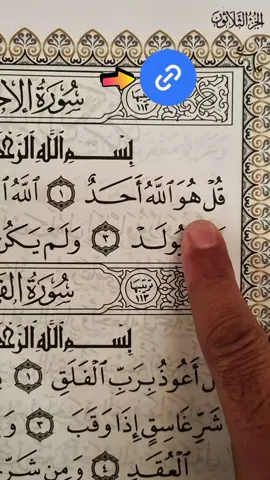 الجزء الثلاثون
سُورَةُ الإِ
بِسْمِ اللَّهِ الرَّحْمَ
قُلْ هُوَ اللَّهُ أَحَدٌ ١ اللَّهُ
يُولَدْ ٣ وَلَمْ يَكُن
سُورَةُ الفَ
١١٣
بِسْمِ اللَّهِ الرَّحْمَ
أَعُوذُ بِرَبِّ الْفَلَقِ ١
شَرِّ غَاسِقٍ إِذَا وَقَبَ ٣ وَ
الْعُقَدِ ٤ وَمِن شَرِّ